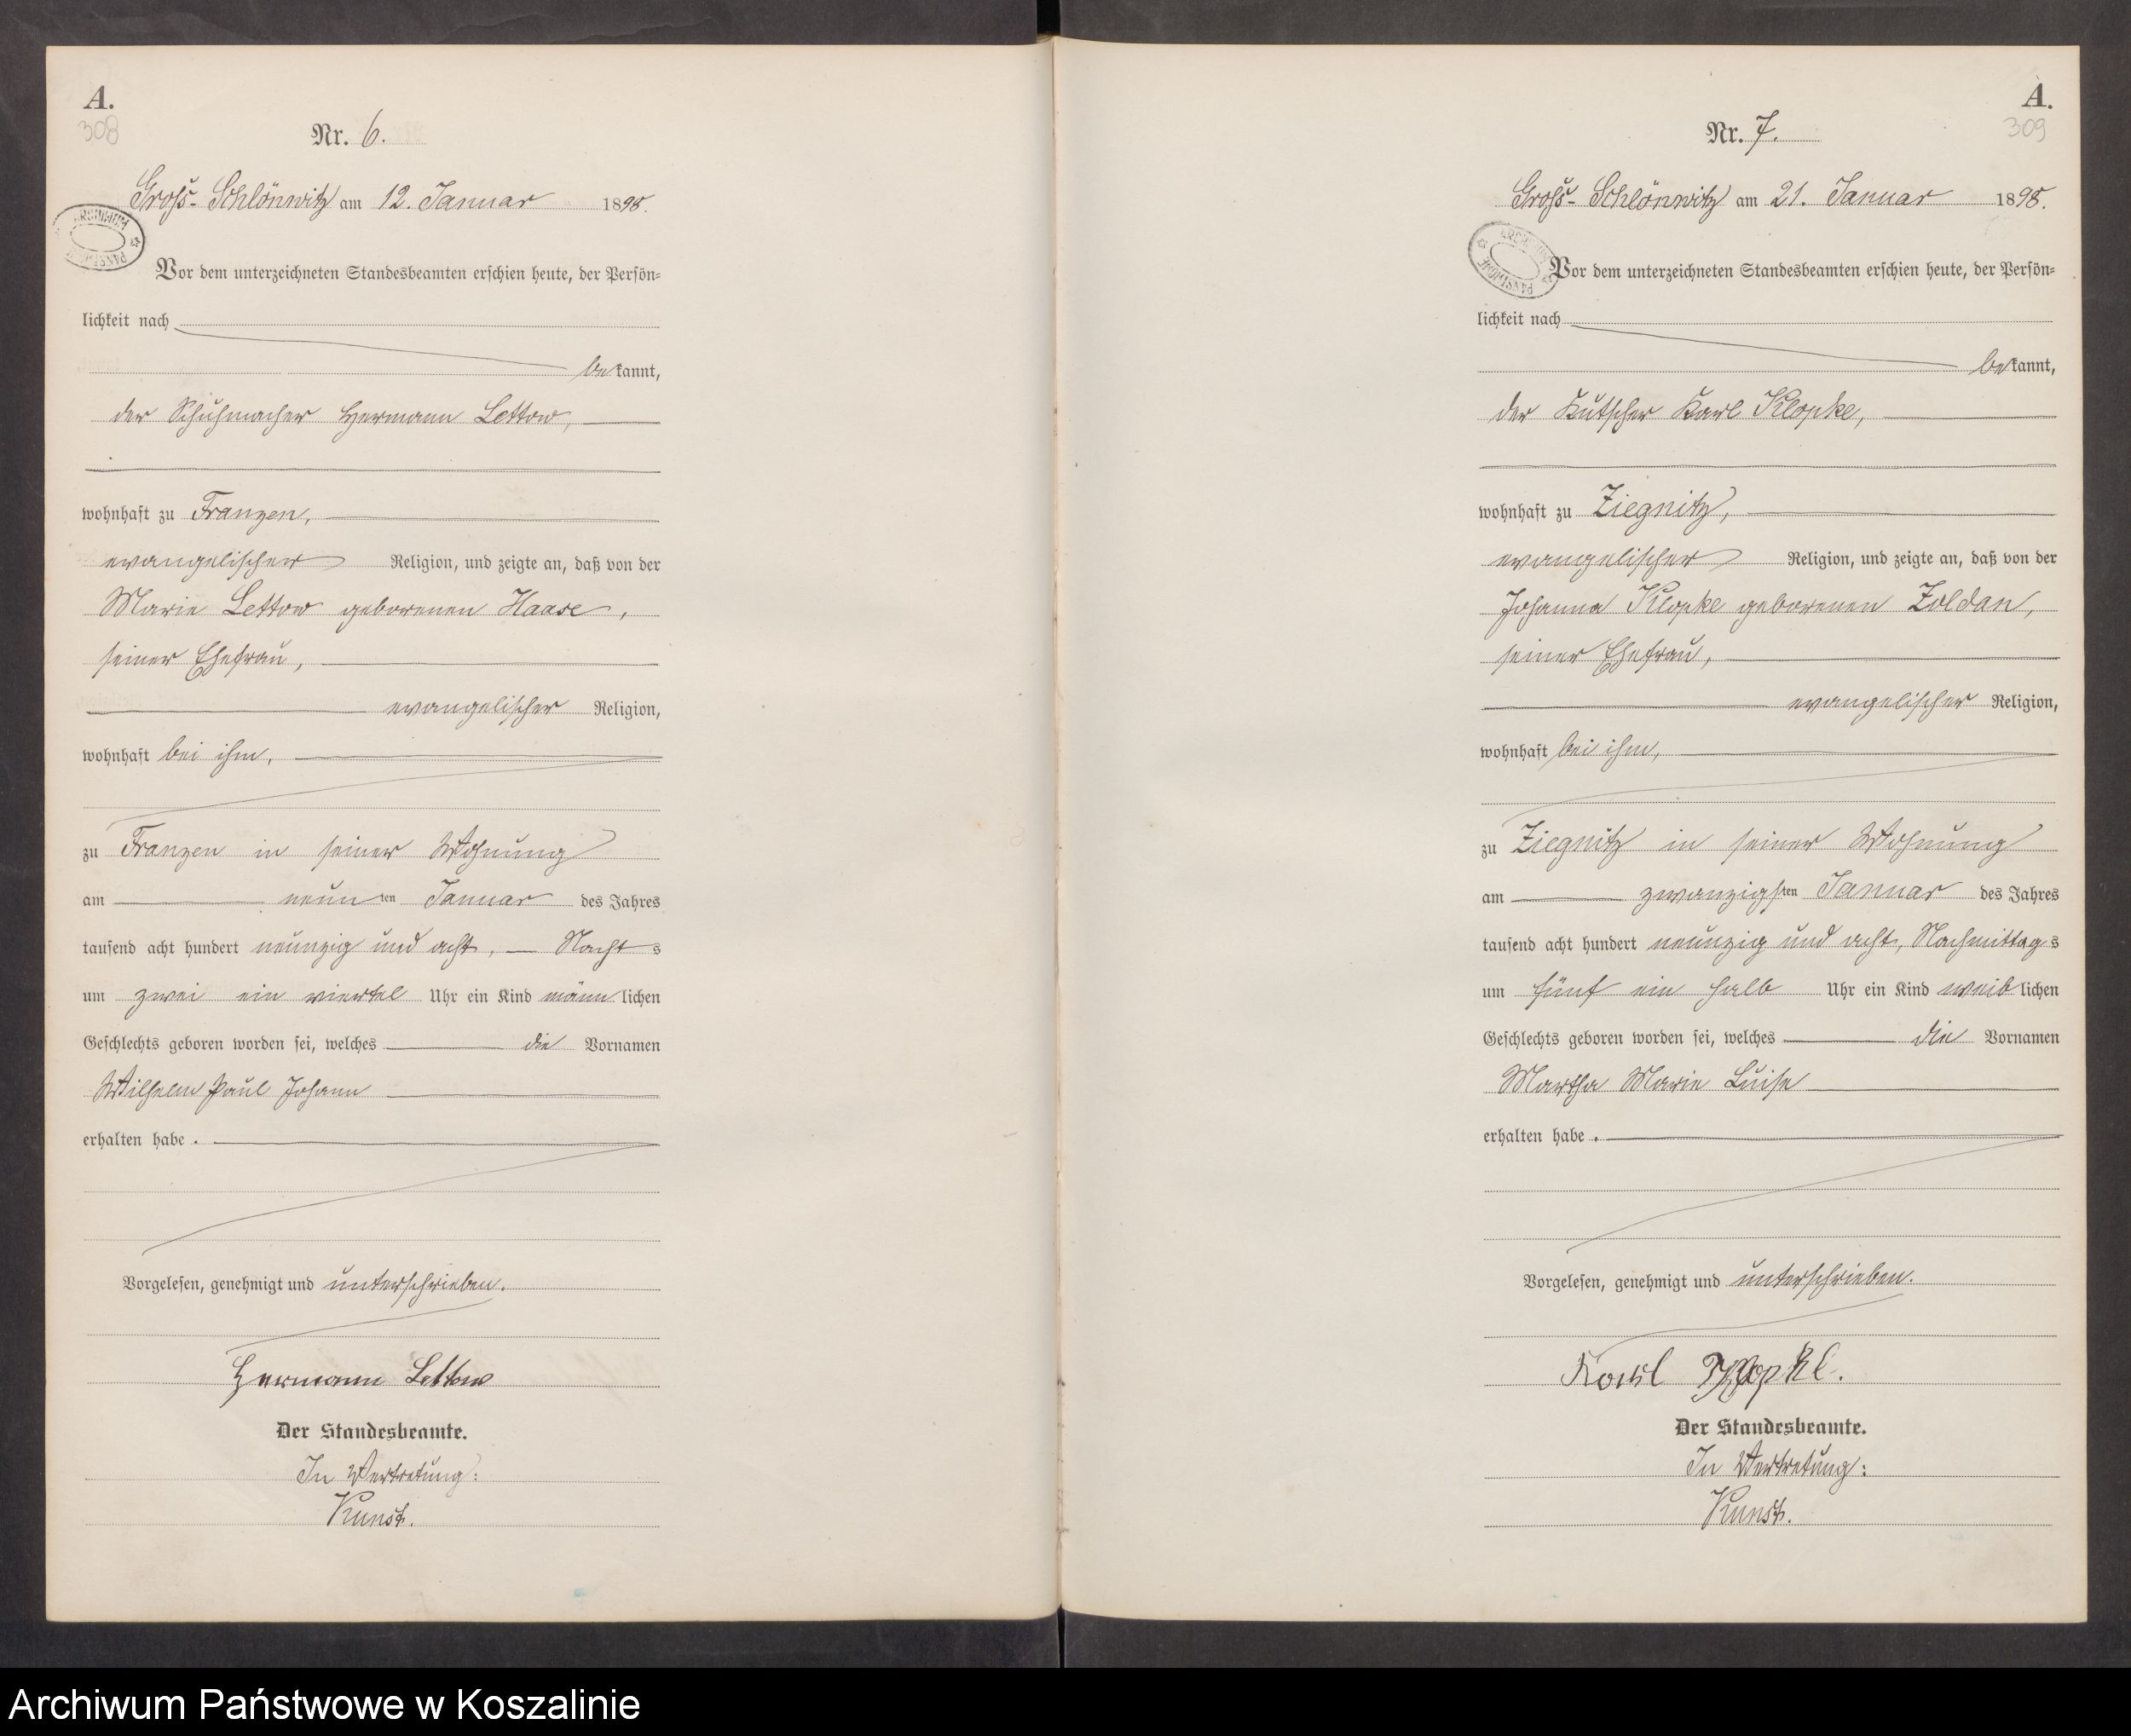 A.
308
Nr. 6.
Groß-Schlönwitz am 12. Januar 1898.
Vor dem unterzeichneten Standesbeamten erschien heute, der Persön-
lichkeit nach
bekannt,
der Schuhmacher Hermann Lettow,
wohnhaft zu Franzen,
evangelischer Religion, und zeigte an, daß von der
Marie Lettow geborenen Haase,
seiner Ehefrau,
evangelischer Religion,
wohnhaft bei ihm,
zu Franzen in seiner Wohnung
am neunten Januar des Jahres
tausend acht hundert neunzig und acht, Nachts
um zwei ein viertel Uhr ein Kind männlichen
Geschlechts geboren worden sei, welches die Vornamen
Wilhelm Paul Johann
erhalten habe.
Vorgelesen, genehmigt und unterschrieben.
Hermann Lettow
Der Standesbeamte.
In Vertretung:
Kunst.
A.
309
Nr. 7.
Groß-Schlönwitz am 21. Januar 1898.
Vor dem unterzeichneten Standesbeamten erschien heute, der Persön-
lichkeit nach
bekannt,
der Kutscher Karl Klopke,
wohnhaft zu Ziegnitz,
evangelischer Religion, und zeigte an, daß von der
Johanna Klopke geborenen Zoldan,
seiner Ehefrau,
evangelischer Religion,
wohnhaft bei ihm,
zu Ziegnitz in seiner Wohnung
am zwanzigsten Januar des Jahres
tausend acht hundert neunzig und acht, Nachmittags
um fünf ein halb Uhr ein Kind weiblichen
Geschlechts geboren worden sei, welches die Vornamen
Martha Marie Luise
erhalten habe.
Vorgelesen, genehmigt und unterschrieben.
Karl
Der Standesbeamte.
In Vertretung:
Kunst.
Archiwum Państwowe w Koszalinie